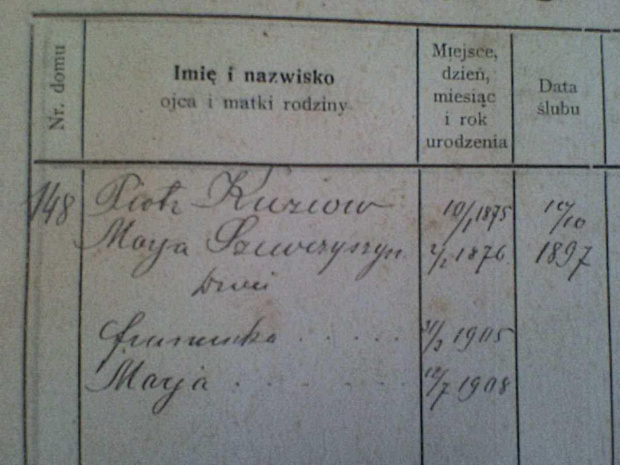 Nr. domu
Imię i nazwisko
ojca i matki rodziny
Miejsce,
dzień,
miesiąc
i rok
urodzenia
Data
ślubu
148 Piotr Kuziow 10/1 1875 10/10
Marja Szewczyszyn 2/2 1876 1897
Dzieci
franciszka . . . . . 31/3 1905
Marja . . . . . . 12/7 1908